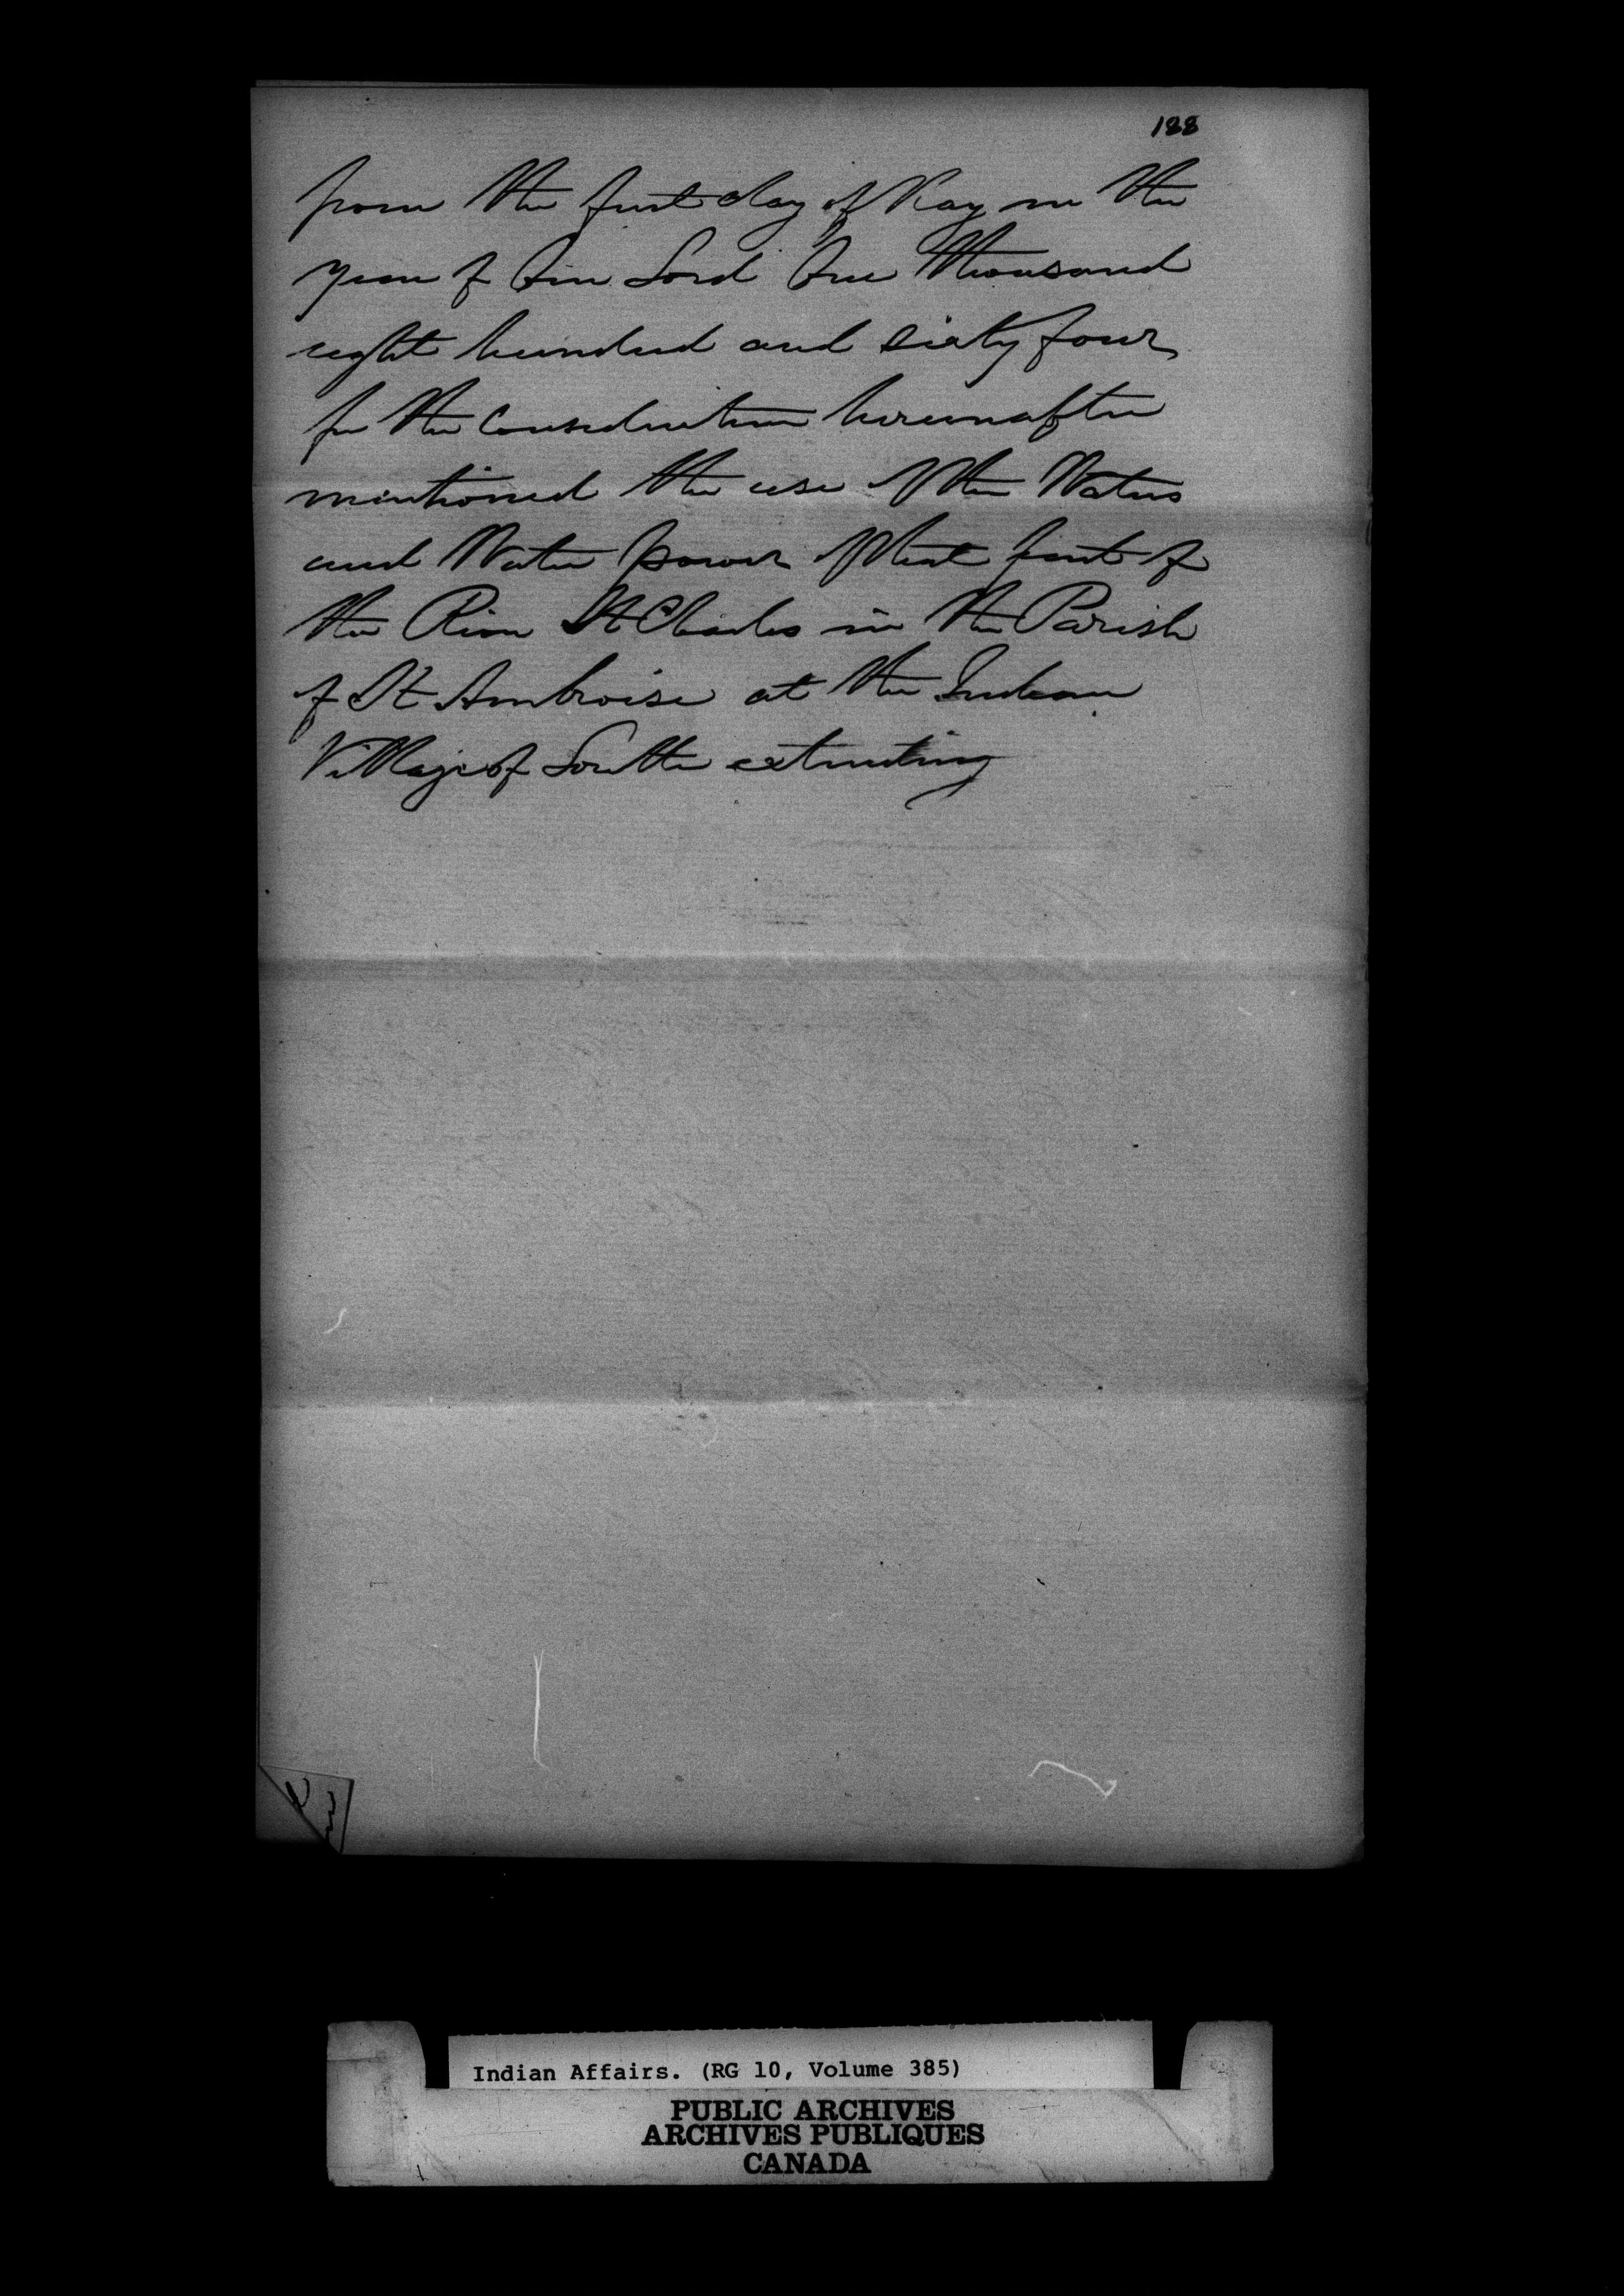 188
from the first day of May in the
year of Our Lord One thousand
eight hundred and sixty four
for the Consideration hereinafter
mentioned the use of the Waters
and Water power of that part of
the River St Charles in the Parish
of St Ambroise at the Indian
Village of Lorette extending
Indian Affairs. (RG 10, Volume 385)
PUBLIC ARCHIVES
ARCHIVES PUBLIQUES
CANADA